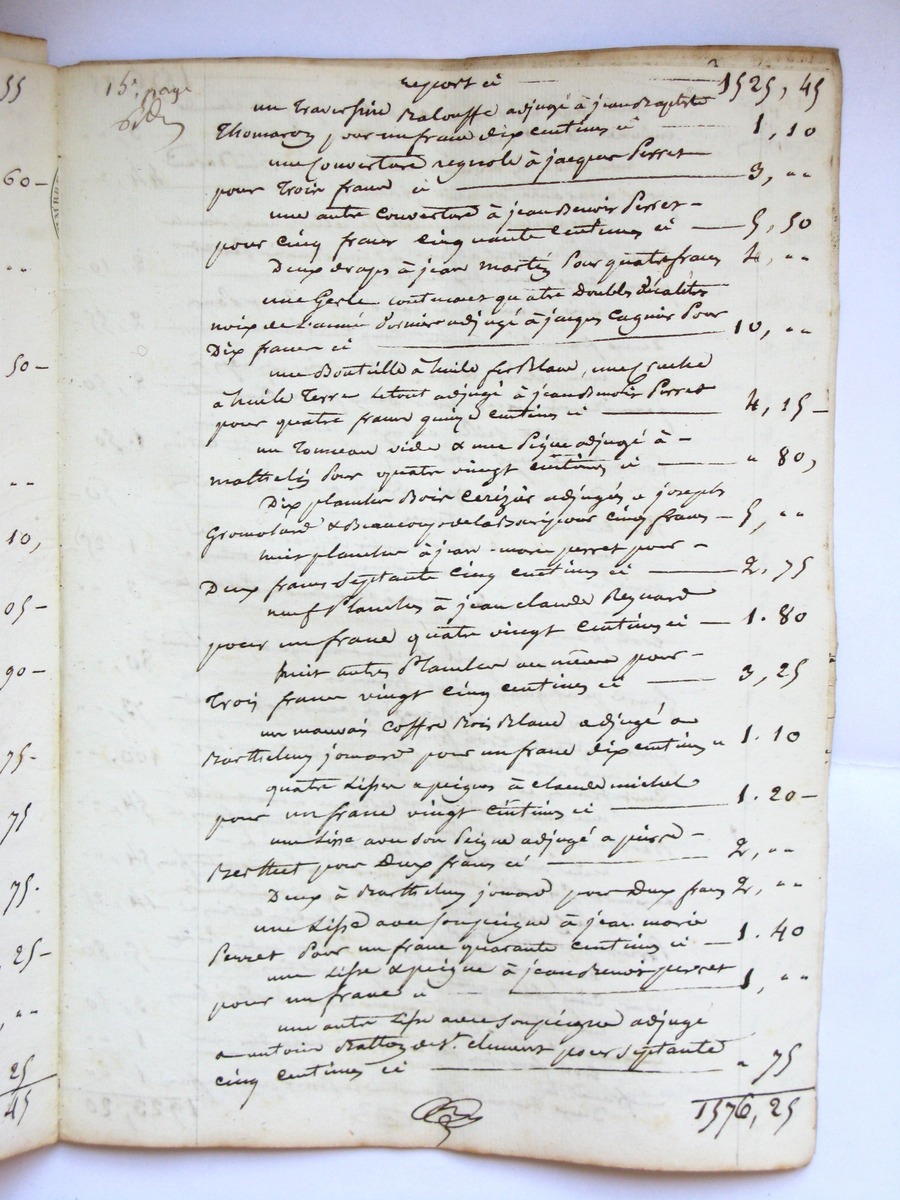 55
60 —
" "
50 —
" "
10,
05 —
90 —
75 -
75
75 -
25 -
, " "
25
45
15e. page
report ci 1525, 45
un Traversins Balouffe adjugé à jean Baptiste
Thomaron pour un franc dix centimes ci 1, 10
une Couverture à jacques Perret
pour Trois francs ci 3, " "
une autre Couverture à jean Benoit Perret -
pour Cinq francs Cinquante Centimes ci 5, 50
Deux draps à jean martin Pour quatre francs 4, " "
une Gerle contenant quatre Doubles décalitres
noix de L'année Derniere adjugé à jacques Pour
Dix francs ci 10, " "
une Bouteille à huile fer Blanc, une Cruche
à huile Terre Letout adjugé à jean Benoit Perret
pour quatre francs quinze Centimes ci 4, 15 -
un Tonneau vide & une adjugé à -
pour quatre vingt Centimes ci " 80,
Dix planches Bois Cerizier adjugés a joseph
& pour Cinq francs - 5, " "
huit planches à jean - marie perret pour -
Deux francs Septante Cinq Centimes ci 2, 75
neuf Planches à jean claude Reynard
pour un franc quatre vingt Centimes ci 1. 80
huit autres Planches au même pour -
Trois francs vingt Cinq Centimes ci 3, 25
un mauvais Coffre Bois Blanc adjugé a
Barthelemy jomard pour un franc dix centimes ci 1. 10
quatre Lisses & peignes à claude michel
pour un franc vingt Centimes ci 1. 20 -
une Lisse avec Son Peigne adjugé a pierre -
Berthet pour Deux francs ci 2, " "
Deux à Barthelemy jomard pour Deux francs 2, " "
une Lisse avec Son peigne à jean marie
Perret Pour un franc quarante Centimes ci 1. 40
une Lisse & peigne à jean Benoit perret
pour un franc ci 1, " "
une autre Lisse avec Son peigne adjugé
a antoine de St. clement pour Septante
Cinq Centimes ci " 75
1576, 25